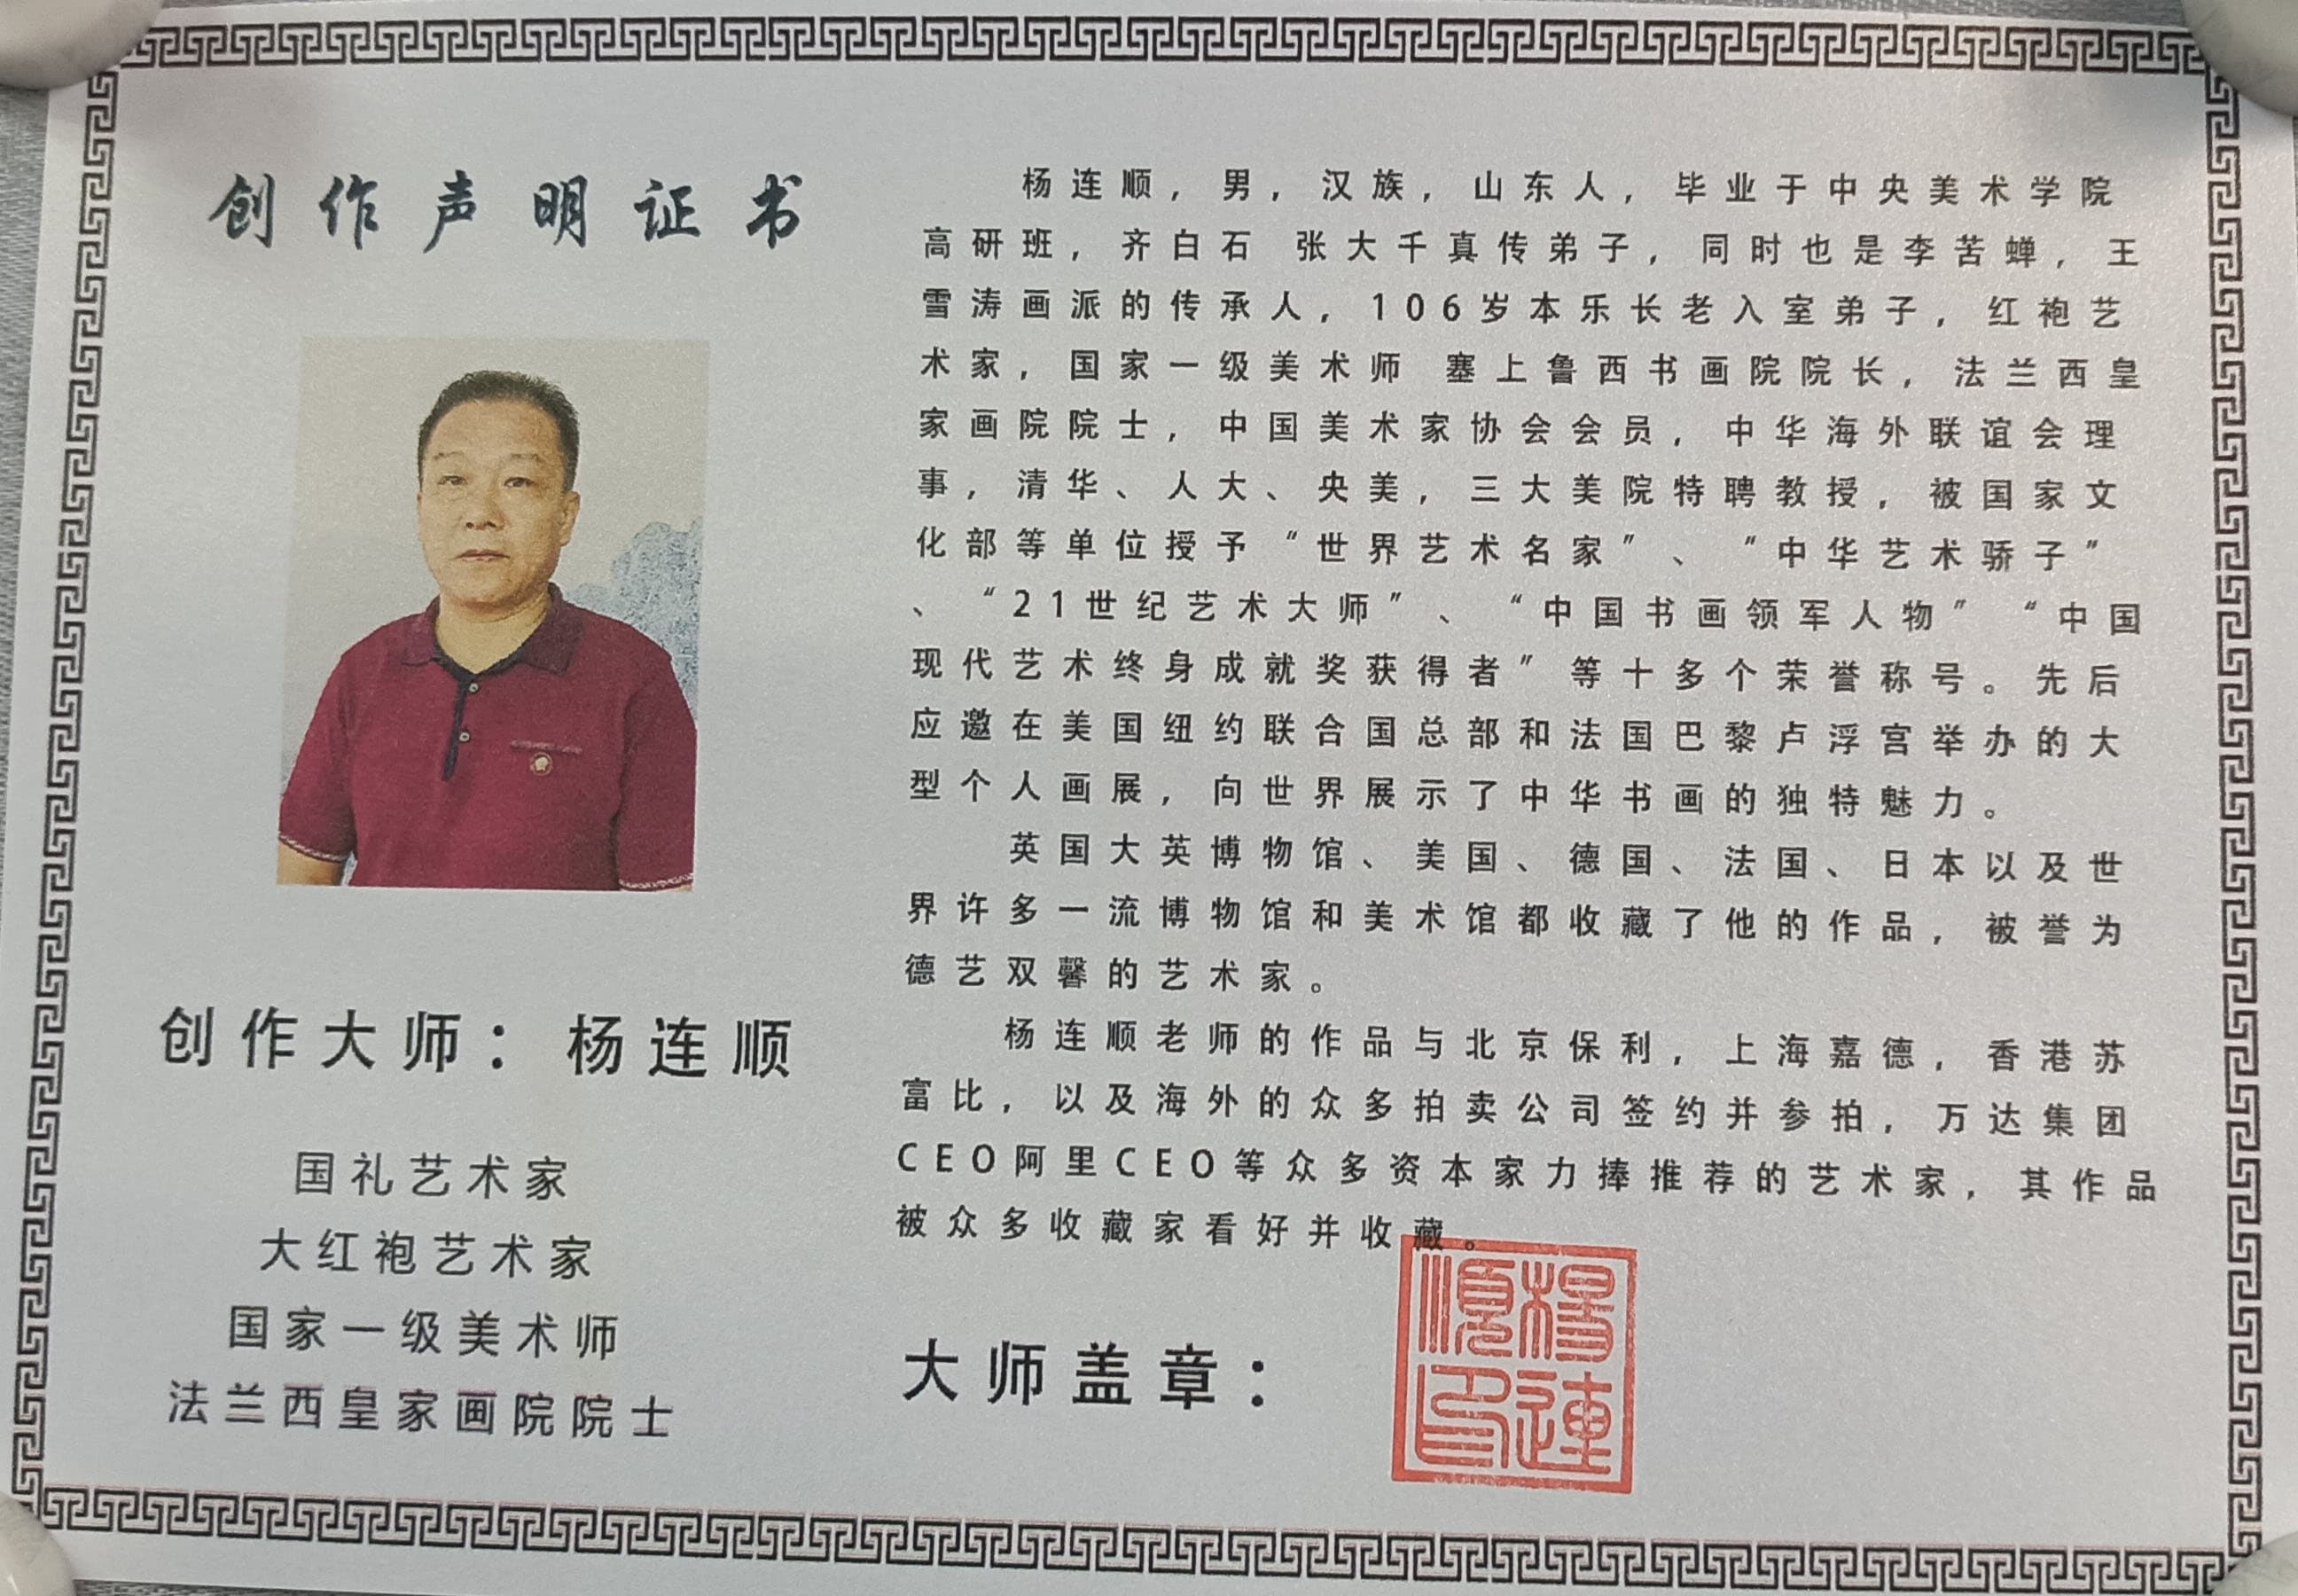 创作声明证书
创作大师：杨连顺
国礼艺术家
大红袍艺术家
国家一级美术师
法兰西皇家画院院士
杨连顺，男，汉族，山东人，毕业于中央美术学院
高研班，齐白石 张大千真传弟子，同时也是李苦蝉，王
雪涛画派的传承人，106岁本乐长老入室弟子，红袍艺
术家，国家一级美术师 塞上鲁西书画院院长，法兰西皇
家画院院士，中国美术家协会会员，中华海外联谊会理
事，清华、人大、央美，三大美院特聘教授，被国家文
化部等单位授予“世界艺术名家”、“中华艺术骄子”
、“21世纪艺术大师”、“中国书画领军人物”“中国
现代艺术终身成就奖获得者”等十多个荣誉称号。先后
应邀在美国纽约联合国总部和法国巴黎卢浮宫举办的大
型个人画展，向世界展示了中华书画的独特魅力。
英国大英博物馆、美国、德国、法国、日本以及世
界许多一流博物馆和美术馆都收藏了他的作品，被誉为
德艺双馨的艺术家。
杨连顺老师的作品与北京保利，上海嘉德，香港苏
富比，以及海外的众多拍卖公司签约并参拍，万达集团
CEO阿里CEO等众多资本家力捧推荐的艺术家，其作品
被众多收藏家看好并收藏。
大师盖章：
楊連
順印